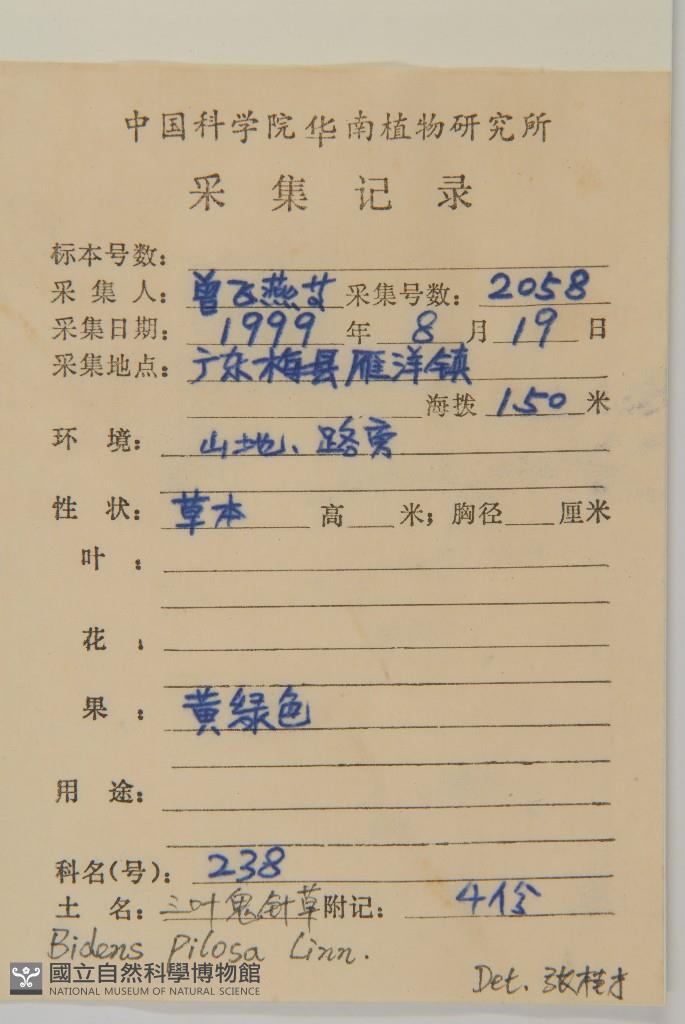 中国科学院华南植物研究所
采集记录
标本号数：
采集人：曾飞燕艾 采集号数：2058
采集日期：1999年8月19日
采集地点：广东梅县雁洋镇
海拨150米
环境：山地、路旁
性状：草本 高 米；胸径 厘米
叶：
花：
果：黄绿色
用途：
科名(号)：238
土名：三叶鬼针草 附记：4份
Bidens Pilosa Linn.
Det. 张桂才
國立自然科學博物館
NATIONAL MUSEUM OF NATURAL SCIENCE